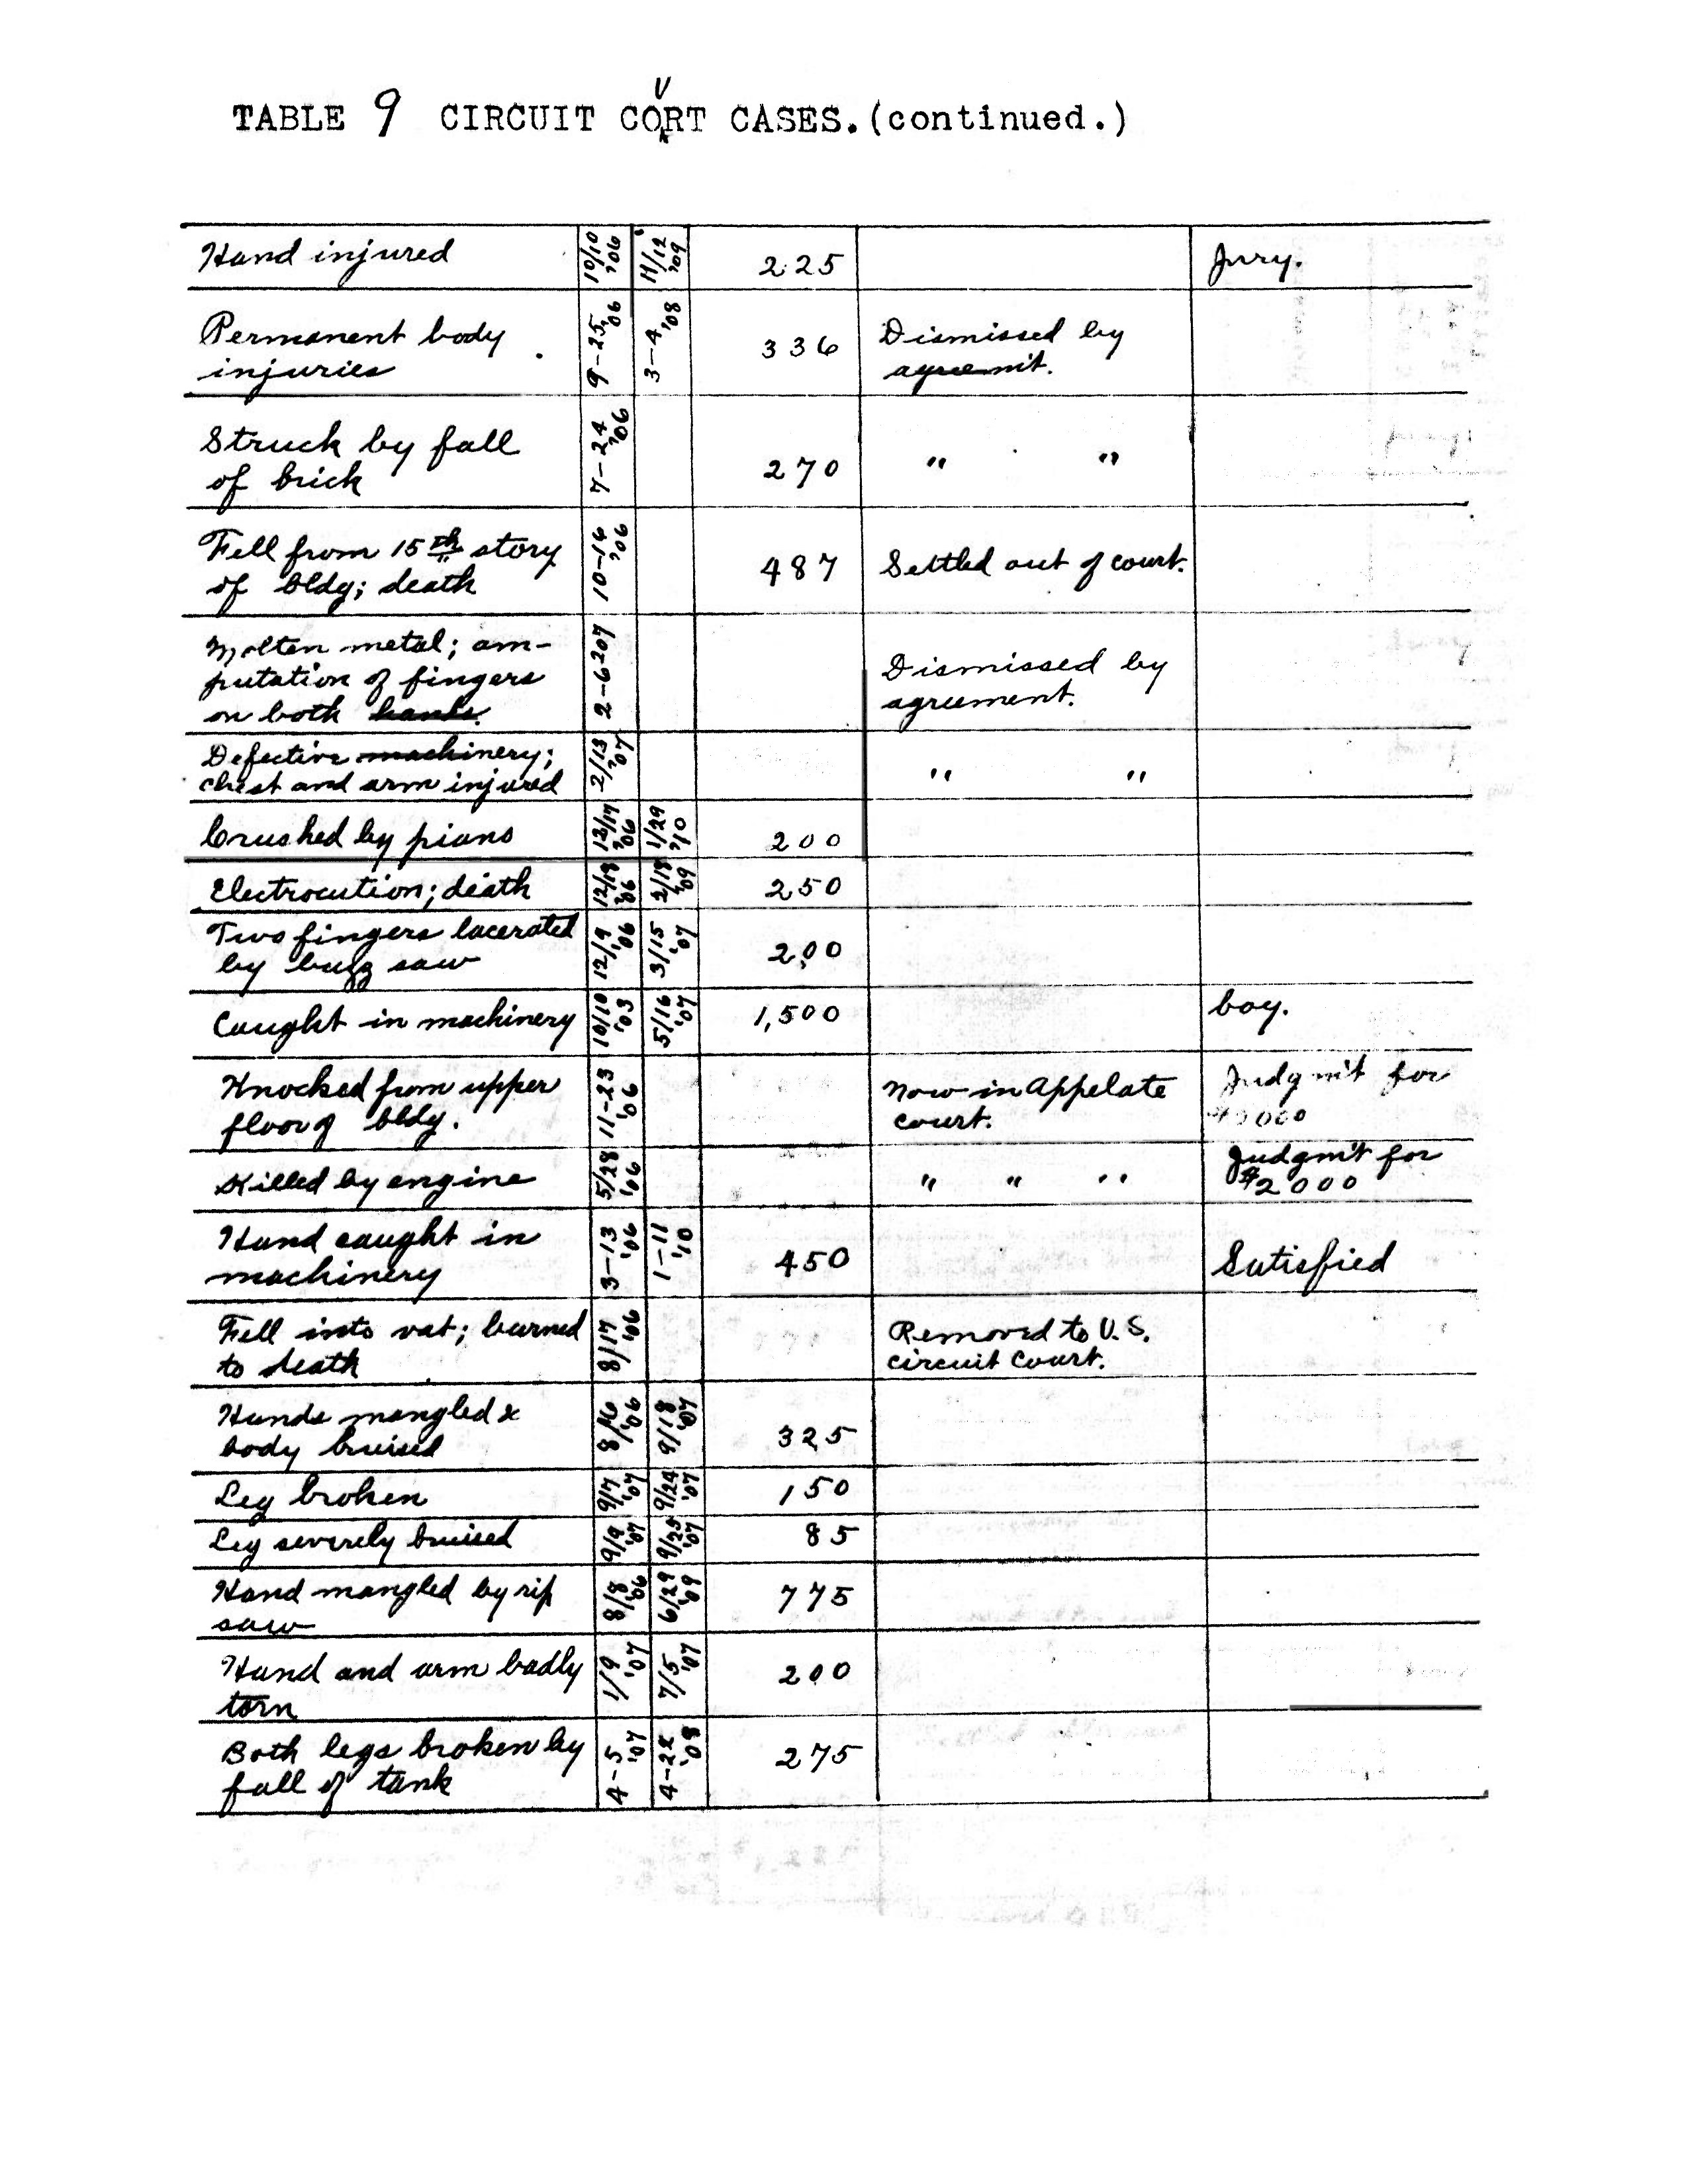 TABLE 9 CIRCUIT COuRT CASES.(continued.)
Hand injured 10/10 '06 11/12 '09 225 Jury.
Permanent body injuries 9-25 '06 3-4 '08 336 Dismissed by agreemnt.
Struck by fall of brick 7-24 '06 270 " "
Fell from 15th story of bldg; death 10-16 '06 487 Settled out of court.
Molten metal; am-
putation of fingers
on both hands. 2-6-207 Dismissed by agreement.
Defective machinery; chest and arm injured 2/13 '07 " "
Crushed by piano 12/17 '06 1/29 '10 200
Electrocution; death 12/18 '06 2/18 '09 250
Two fingers lacerated by buzz saw 12/9 '06 3/15 '07 200
Caught in machinery 10/10 '03 5/16 '07 1,500 boy.
Knocked from upper floor of bldg. 11-23 '06 Now in Appelate court. Judgm't for
Killed by engine 5/28 '06 " " " Judgm't for $2000
Hand caught in machinery 3-13 '06 1-11 '10 450 Satisfied
Fell into vat; burned to death 8/17 '06 Removed to U.S. circuit court.
Hands mangled & body bruised 8/16 '06 9/18 '07 325
Leg broken 9/7 '07 9/24 '07 150
Leg severely bruised 9/9 '07 9/25 '07 85
Hand mangled by rip saw 8/8 '06 6/29 '09 775
Hand and arm badly torn 1/19 '07 7/5 '07 200
Both legs broken by fall of tank 4-5 '07 4-22 '08 275